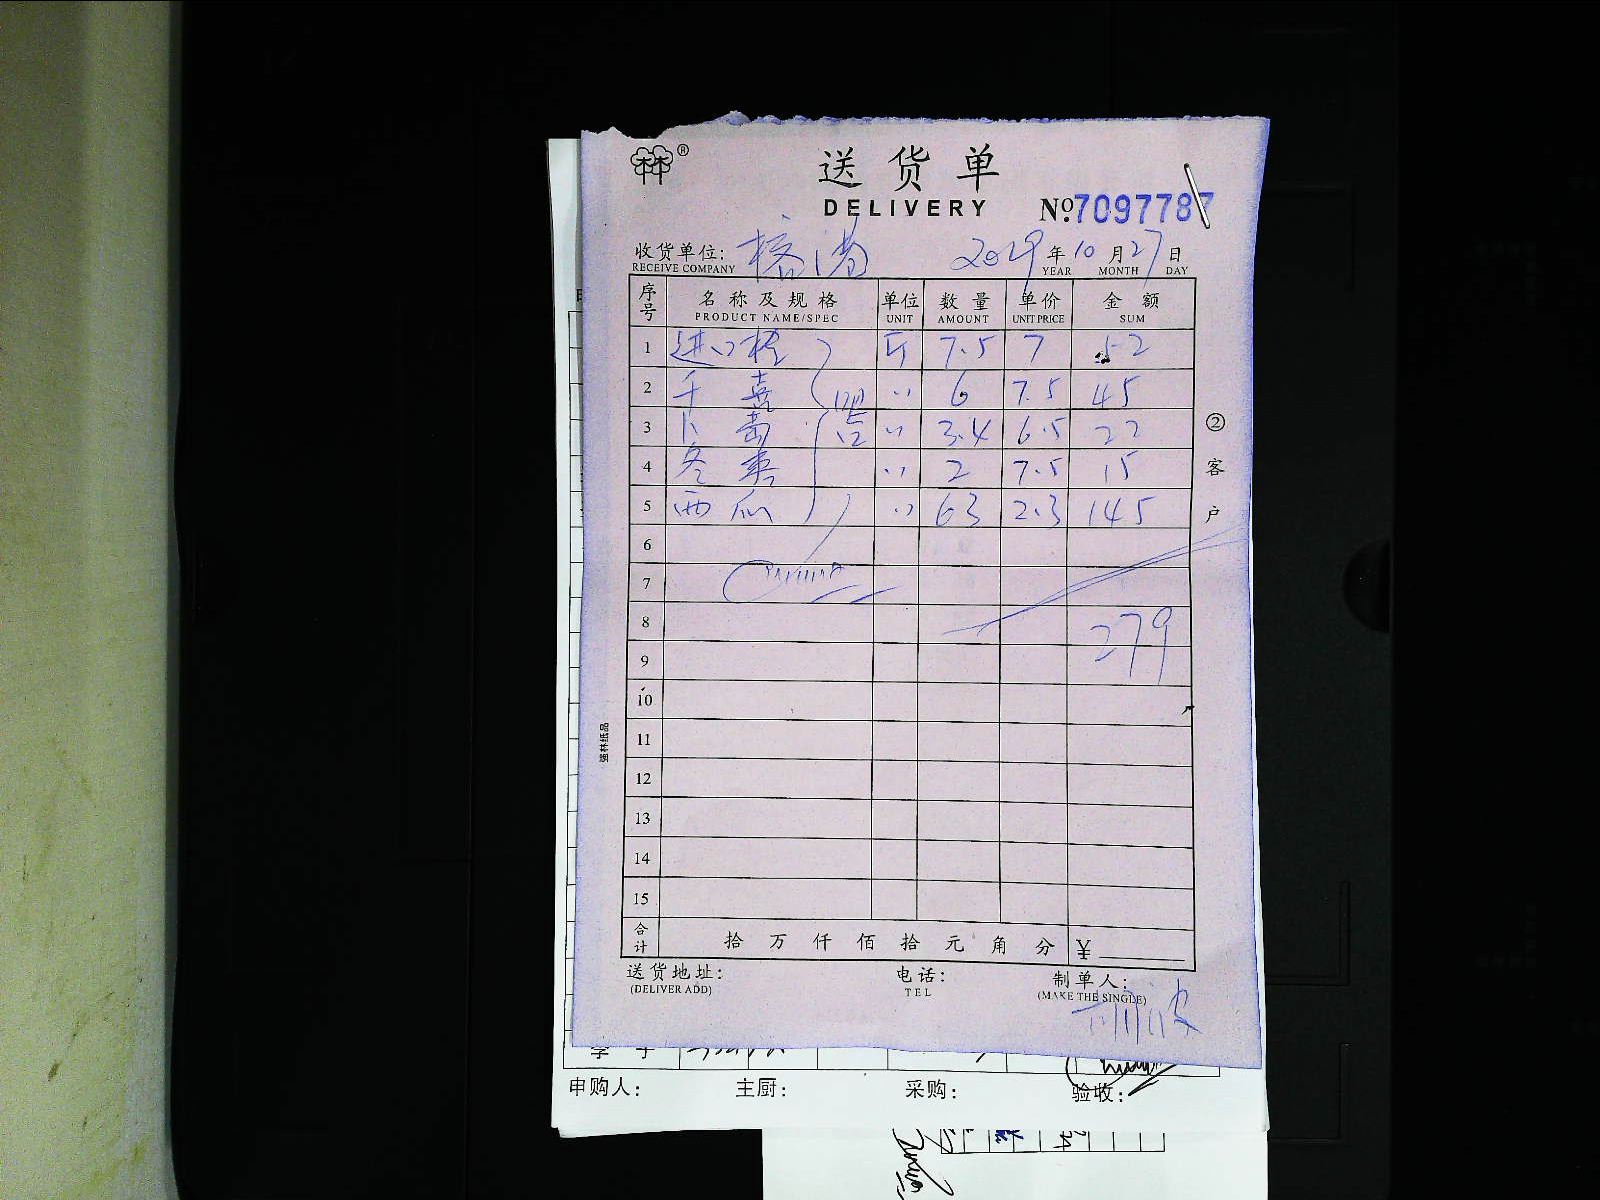 ®
送货单
DELIVERY
No.7097787
收货单位: 榕港 2019年10月27日
RECEIVE COMPANY YEAR MONTH DAY
序号 名称及规格 单位 数量 单价 金额
PRODUCT NAME/SPEC UNIT AMOUNT UNIT PRICE SUM
1 进口橙 斤 7.5 7 52
2 千禧 〃 6 7.5 45
3 卜萄 〃 3.4 6.5 22
4 冬枣 〃 2 7.5 15
5 西瓜 〃 63 2.3 145
6
7
8 279
9
10
11
12
13
14
15
合计 拾 万 仟 佰 拾 元 角 分 ¥
②客户
强林纸品
送货地址: 电话: 制单人:
(DELIVER ADD) TEL (MAKE THE SINGLE)
申购人: 主厨: 采购: 验收: